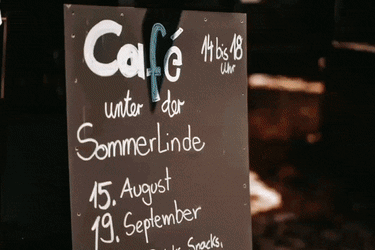 Café
14 bis 18
Uhr
unter der
SommerLinde
15. August
19. September
Snacks,